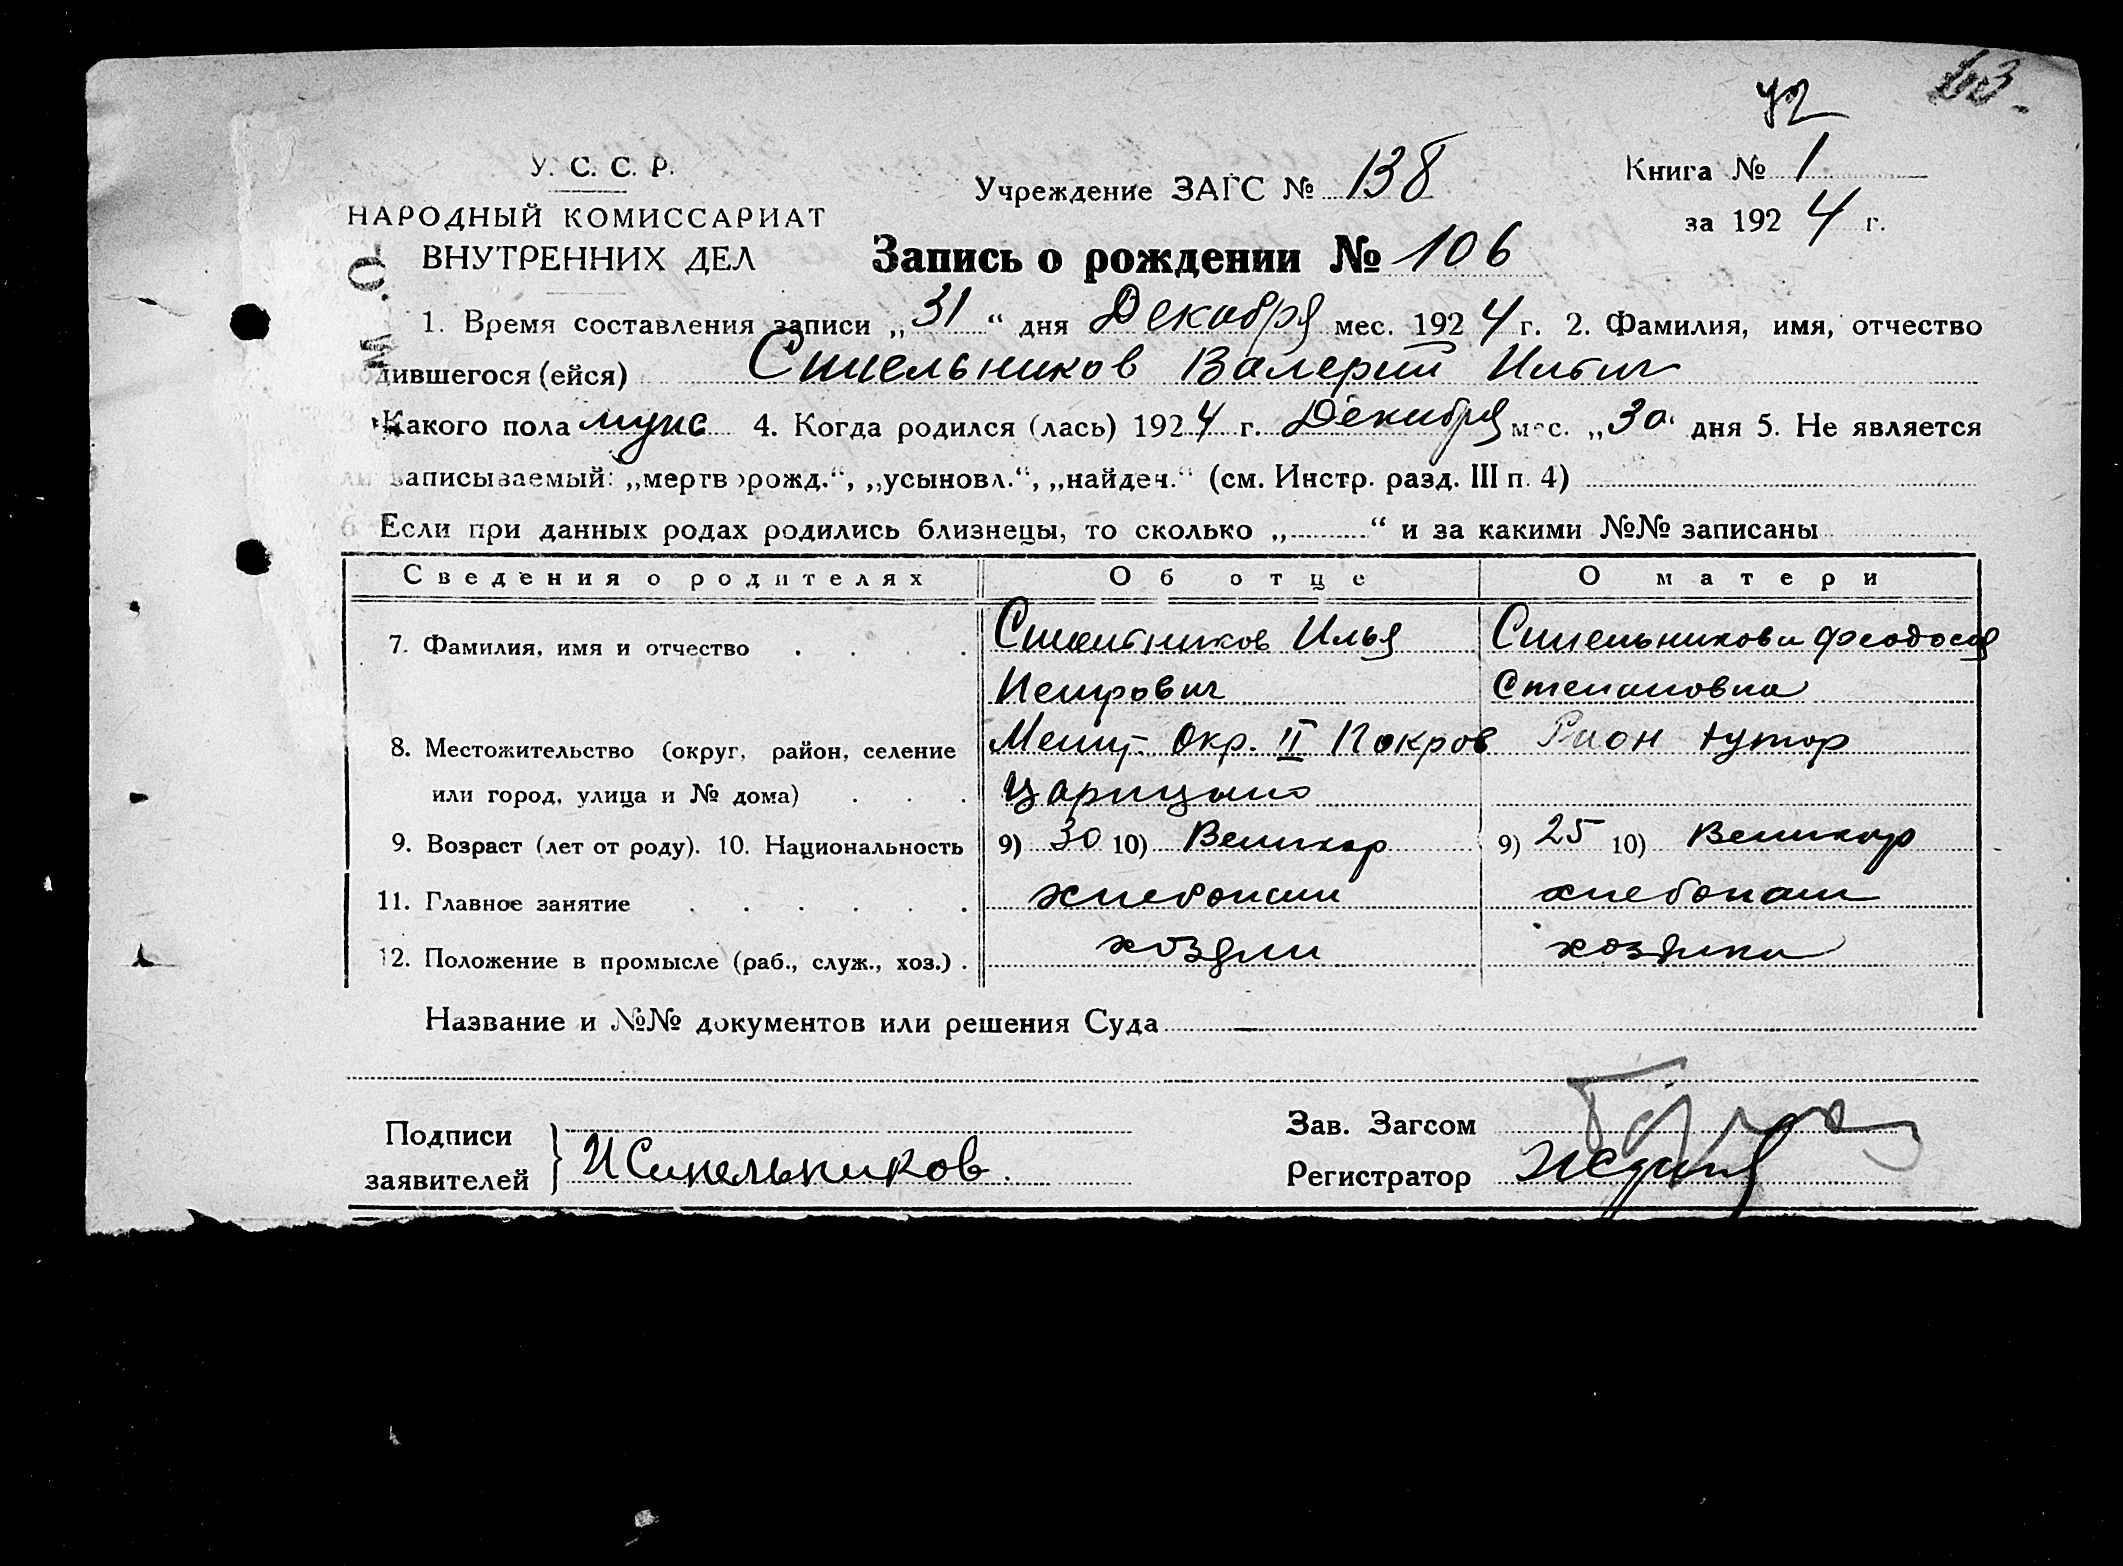 42
У. С. С. Р.
НАРОДНЫЙ КОМИССАРИАТ
ВНУТРЕННИХ ДЕЛ
Учреждение ЗАГС № 138
Книга № 1
за 1924 г.
Запись о рождении № 106
1. Время составления записи „31“ дня Декабря мес. 1924 г. 2. Фамилия, имя, отчество
родившегося (ейся) Синельников Валерий Ильич
3 Какого пола муж 4. Когда родился (лась) 1924 г. Декабря мес. „30“ дня 5. Не является
ли записываемый: „мертворожд.“, „усыновл.“, „найден.“ (см. Инстр. разд. III п. 4)
6 Если при данных родах родились близнецы, то сколько „..........“ и за какими №№ записаны
Сведения о родителях Об отце О матери
7. Фамилия, имя и отчество Синельников Илья Синельникова Феодосия
Петрович Степановна
8. Местожительство (округ, район, селение Мелит. Окр. II Покров Район хутор
или город, улица и № дома) Царицыно
9. Возраст (лет от роду). 10. Национальность 9) 30 10) Великор 9) 25 10) Великор
11. Главное занятие хлебопаш хлебопаш
12. Положение в промысле (раб., служ., хоз.) хозяин хозяйка
Название и №№ документов или решения Суда —
Подписи
заявителей } И Синельников.
Зав. Загсом
Регистратор